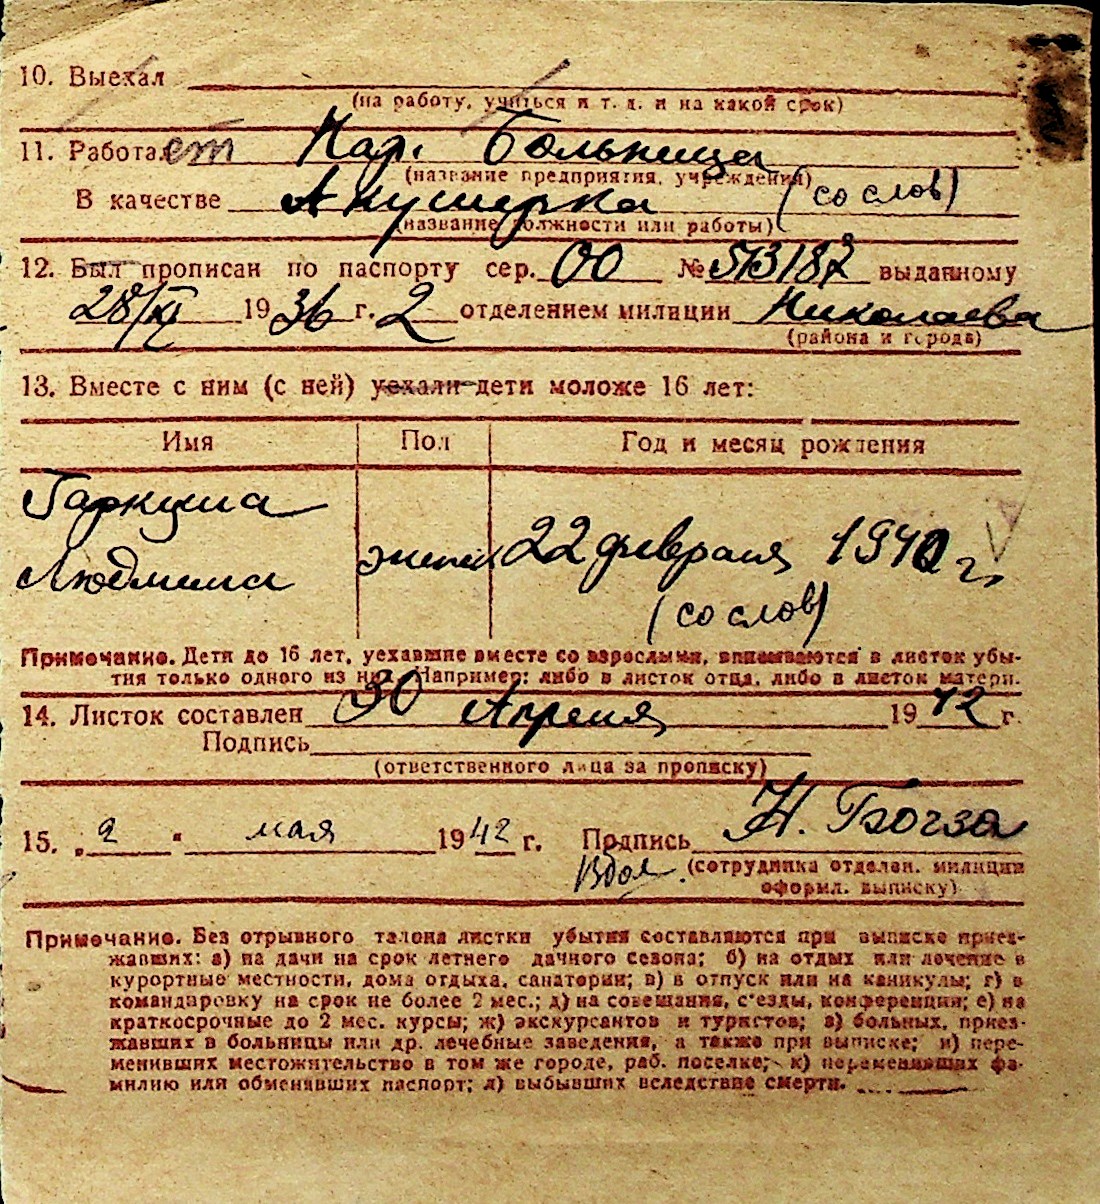 10. Выехал
(на работу, учиться и т. д. и на какой срок)
11. Работает Нар. Больница
(название предприятия, учреждения)
В качестве Акушерка (со слов)
(название должности или работы)
12. Был прописан по паспорту сер. 00 № 513187 выданному
28/XI 1936 г. 2 отделением милиции Николаева
(района и города)
13. Вместе с ним (с ней) уехали дети моложе 16 лет:
Имя Пол Год и месяц рождения
Гаркуша
Людмила женск 22 февраля 1940 г.
(со слов)
Примечание. Дети до 16 лет, уехавшие вместе со взрослыми, вписываются в листок убы-
тия только одного из них. Например: либо в листок отца, либо в листок матери.
14. Листок составлен 30 Апреля 1942 г.
Подпись
(ответственного лица за прописку)
15. „2“ мая 1942 г. Подпись Н. Богза
(сотрудника отделен. милиции
оформл. выписку)
Примечание. Без отрывного талона листки убытия составляются при выписке приез-
жавших: а) на дачи на срок летнего дачного сезона; б) на отдых или лечение в
курортные местности, дома отдыха, санатории; в) в отпуск или на каникулы; г) в
командировку на срок не более 2 мес.; д) на совещания, с'езды, конференции; е) на
краткосрочные до 2 мес. курсы; ж) экскурсантов и туристов; з) больных, приез-
жавших в больницы или др. лечебные заведения, а также при выписке; и) пере-
менивших местожительство в том же городе, раб. поселке; к) переменивших фа-
милию или обменявших паспорт; л) выбывших вследствие смерти.